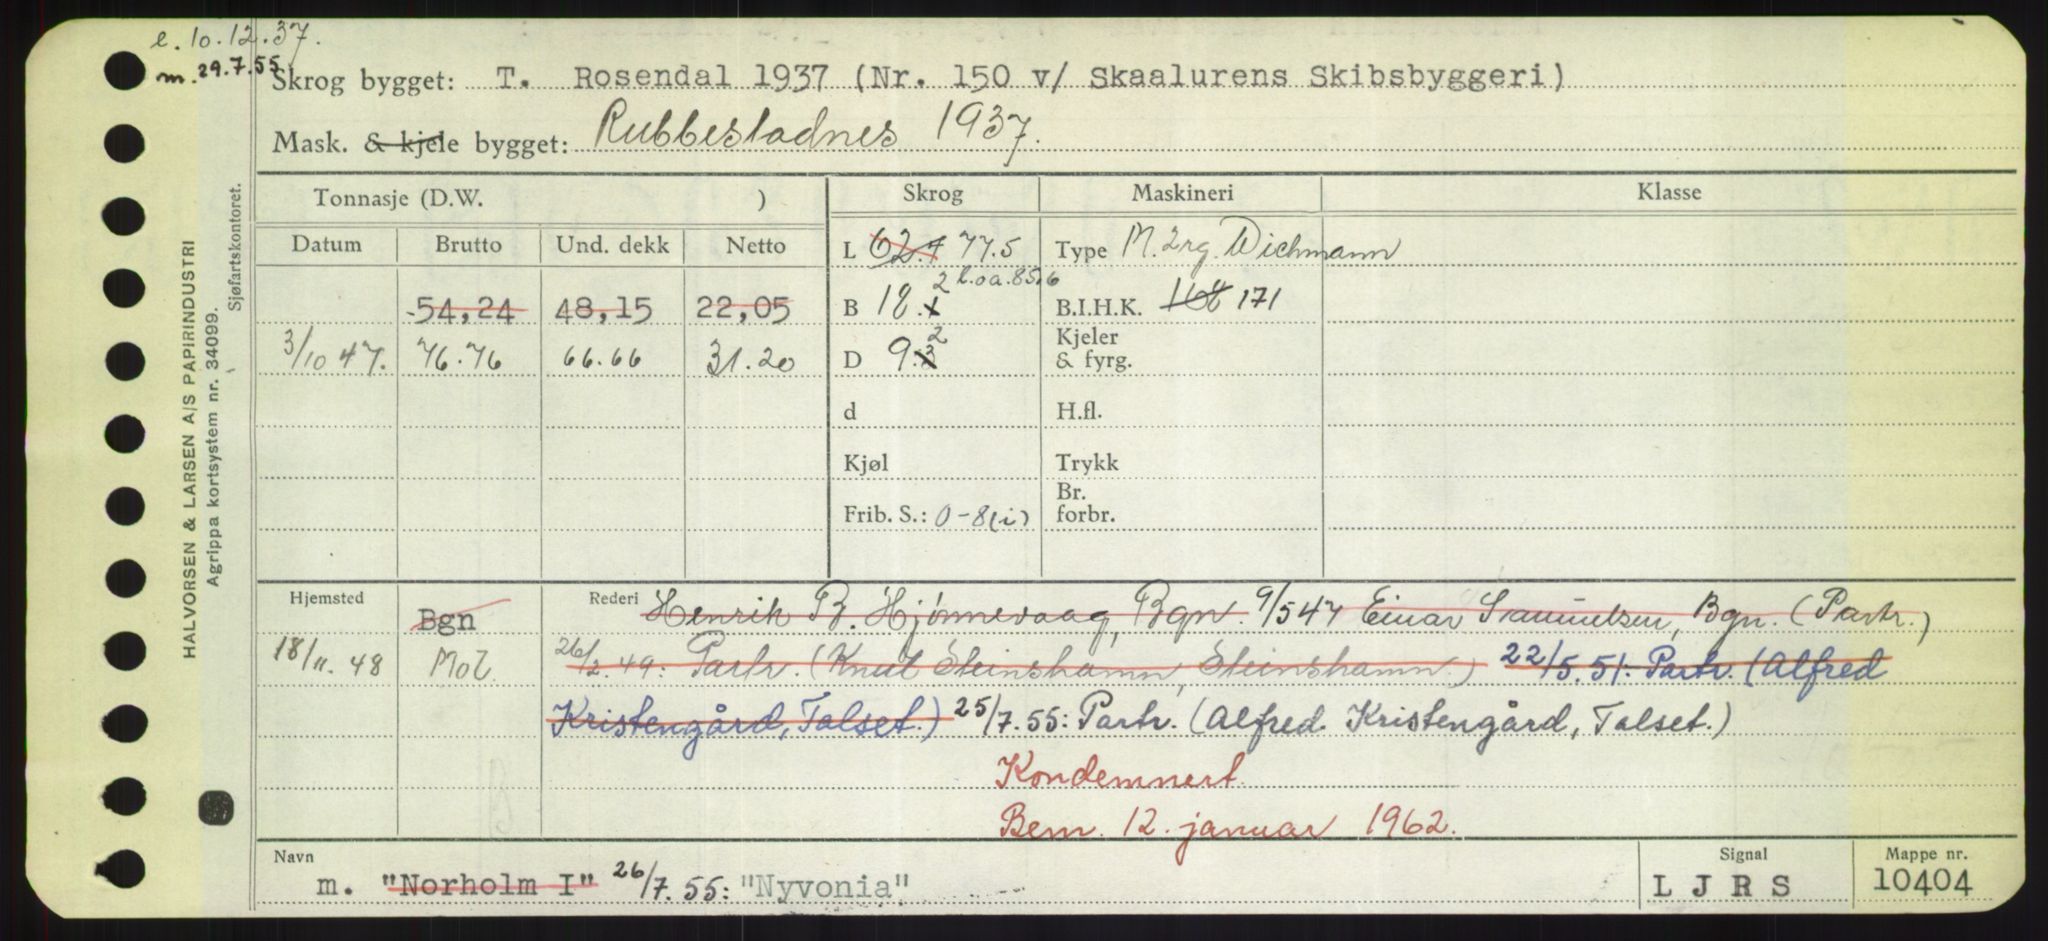 e. 10.12.37.
m. 29.7.55
Skrog bygget: T. Rosendal 1937 (Nr. 150 v/ Skaalurens Skibsbyggeri)
Mask. & kjele bygget: Rubbestadnes 1937.
Tonnasje (D.W. ) Skrog Maskineri Klasse
Datum Brutto Und. dekk Netto
L 62.7 77.5 Type M. 2rg. Wichmann
l.o.a. 85.6
54,24 48,15 22,05 B 18.1 2 B.I.H.K. 168 171
3/10 47. 76.76 66.66 31.20 D 9.3 2 Kjeler & fyrg.
d H.fl.
Kjøl Trykk
Frib. S.: 0-8(i) Br. forbr.
Hjemsted Bgn Rederi Henrik B. Hjønnevaag, Bgn. 9/5 47 Einar Samuelsen, Bgn. (Partr.)
18/11. 48 Mol 26/2. 49: Partr. (Knut Steinshamn, Steinshamn.) 22/5. 51: Partr. (Alfred
Kristengård, Talset.) 25/7. 55: Partr. (Alfred Kristengård, Talset.)
Kondemnert.
Bem. 12. januar 1962.
B
Navn Signal Mappe nr.
m. "Norholm I" 26/7. 55: "Nyvonia" LJRS 10404
HALVORSEN & LARSEN A/S PAPIRINDUSTRI
Agrippa kortsystem nr. 34099.
Sjøfartskontoret.